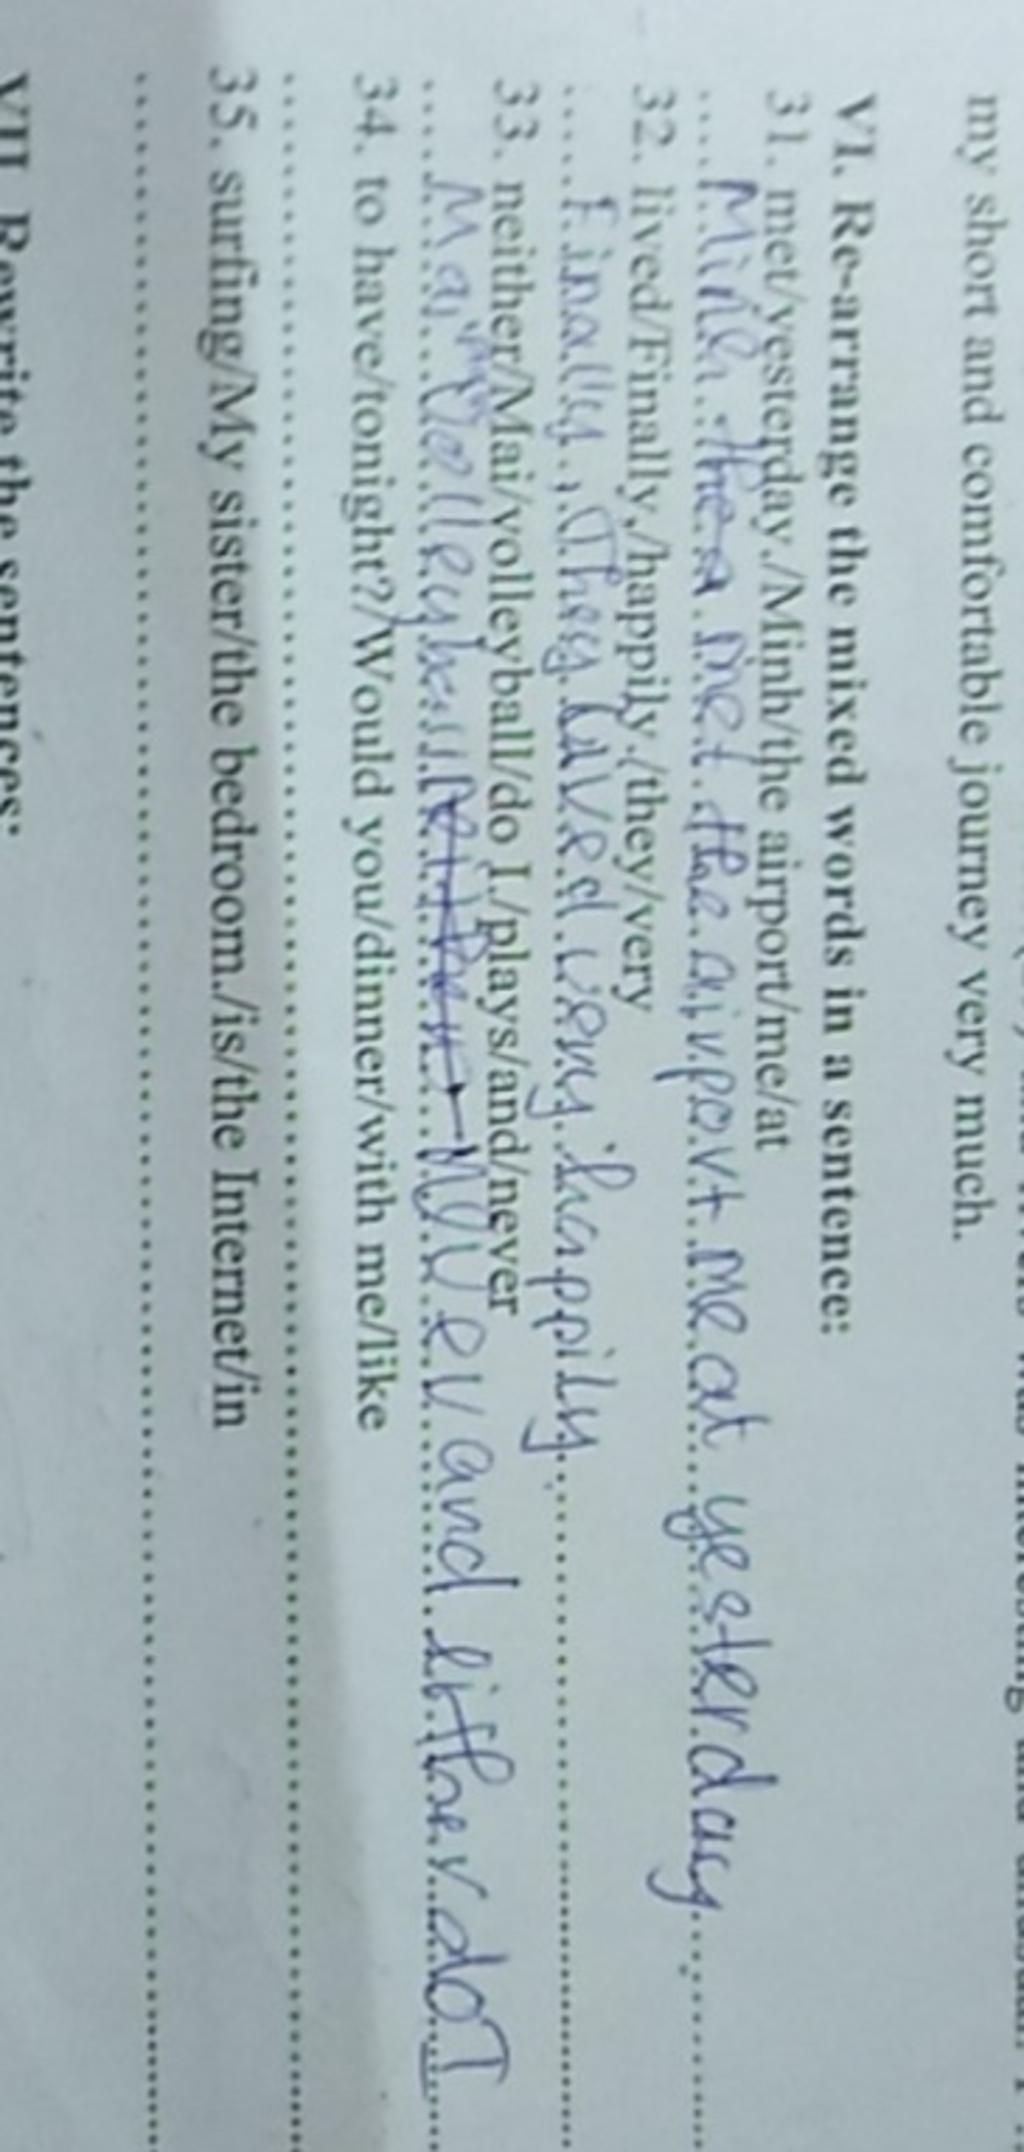 my short and comfortable journey very much.
VI. Re-arrange the mixed words in a sentence:
31. met/yesterday./Minh/the airport/me/at
Minh the met the airport me at yesterday
32. lived/Finally,/happily./they/very
Finally, They Lived very happily
33. neither/Mai/volleyball/do I./plays/and/never
Mai volleyball never and neither do I
34. to have/tonight??/Would you/dinner/with me/like
35. surfing/My sister/the bedroom./is/the Internet/in
VII. Rewrite the sentences: